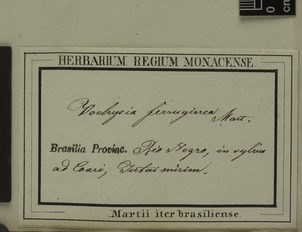 0
cm
HERBARIUM REGIUM MONACENSE.
Vochysia ferruginea Mart.
Brasilia Provinc. Rio Negro, in sylvis
ad Coari, Jutaí mirim.
Martii iter brasiliense.